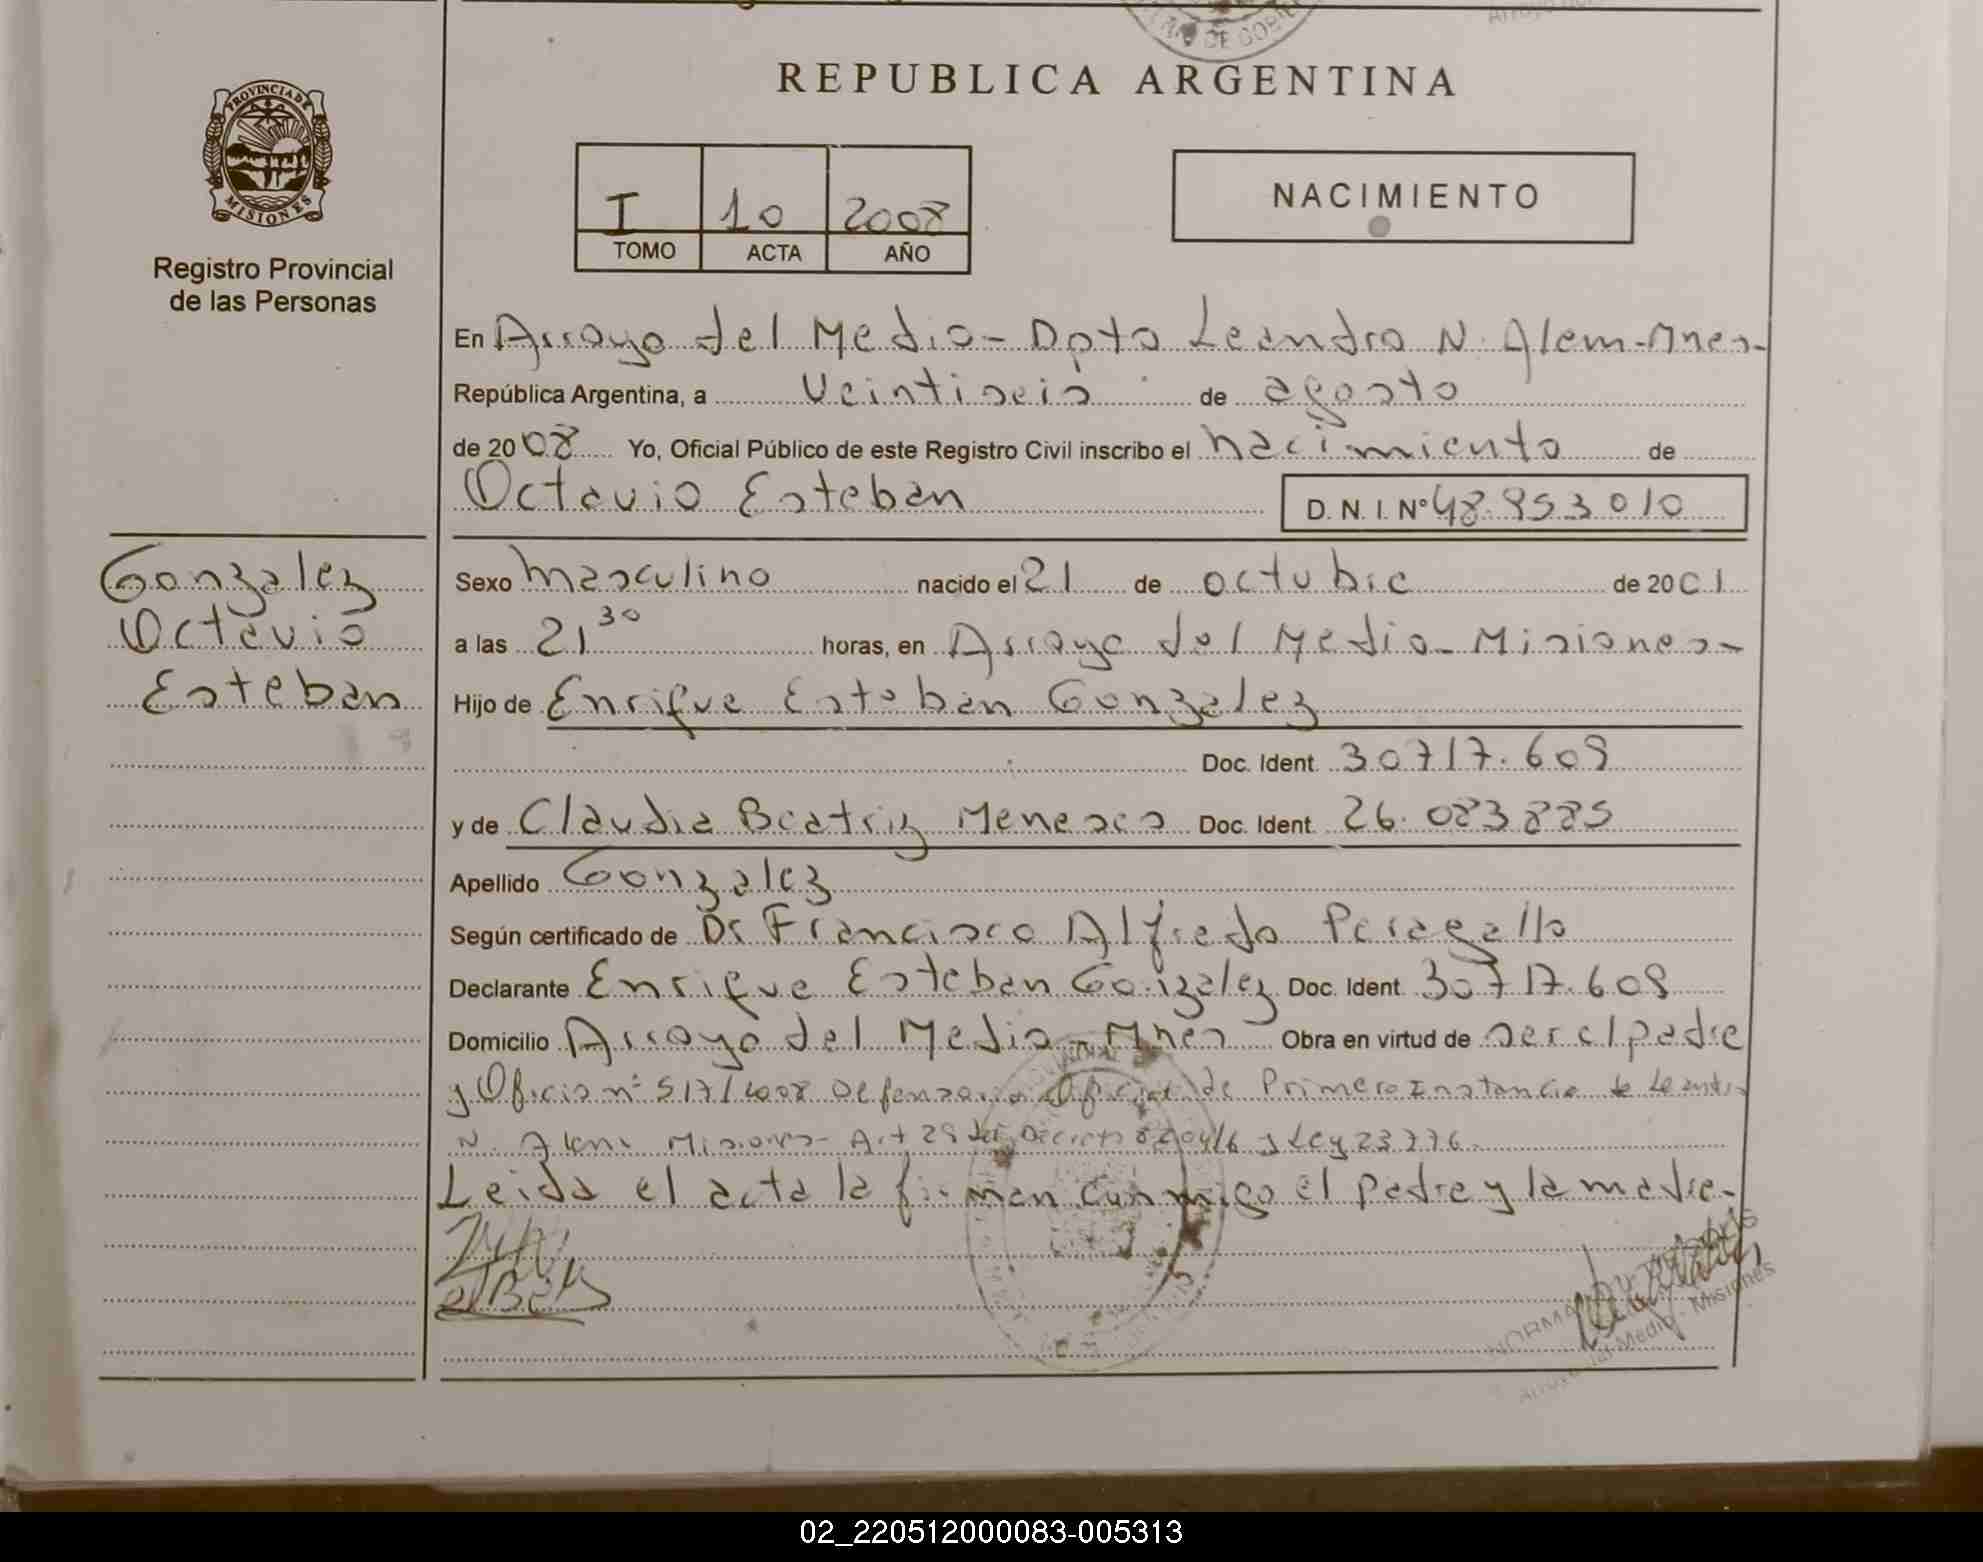 REPUBLICA ARGENTINA
PROVINCIA DE MISIONES
Registro Provincial
de las Personas
I 10 2008
TOMO ACTA AÑO
NACIMIENTO
En Arroyo del Medio - Dpto Leandro N. Alem - Mnes-
República Argentina, a veintiseis de agosto
de 2008 Yo, Oficial Público de este Registro Civil inscribo el nacimiento de
Octavio Esteban D. N. I. Nº 48.953.010
Gonzalez
Octavio
Esteban
Sexo masculino nacido el 21 de octubre de 2001
a las 21 30 horas, en Arroyo del Medio - Misiones-
Hijo de Enrique Esteban Gonzalez
Doc. Ident. 30717.609
y de Claudia Beatriz Meneses Doc. Ident. 26.083885
Apellido Gonzalez
Según certificado de Dr Francisco Alfredo Peragallo
Declarante Enrique Esteban Gonzalez Doc. Ident. 30717.609
Domicilio Arroyo del Medio - Mnes Obra en virtud de ser el padre
y Oficio nº 517/2008 Defensoria Oficial de Primera Instancia de Leandro
N. Alem Misiones - Art 29 del Decreto 8204/6 y Ley 23.776.
Leida el acta la firman conmigo el padre y la madre-
NORMA
Arroyo del Medio - Misiones
02_220512000083-005313